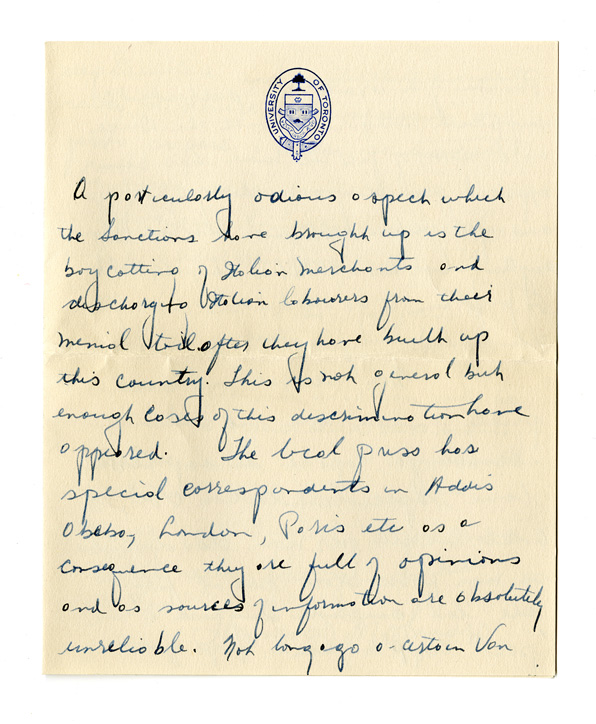 UNIVERSITY OF TORONTO
A particularly odious aspect which
the sanctions have brought up is the
boycotting of Italian merchants and
discharging Italian labourers from their
menial toil after they have built up
this country. This is not general but
enough cases of this discrimination have
appeared. The local press has
special correspondents in Addis
Ababa, London, Paris etc as a
consequence they are full of opinions
and as sources of information are absolutely
unreliable. Not long ago a certain Van